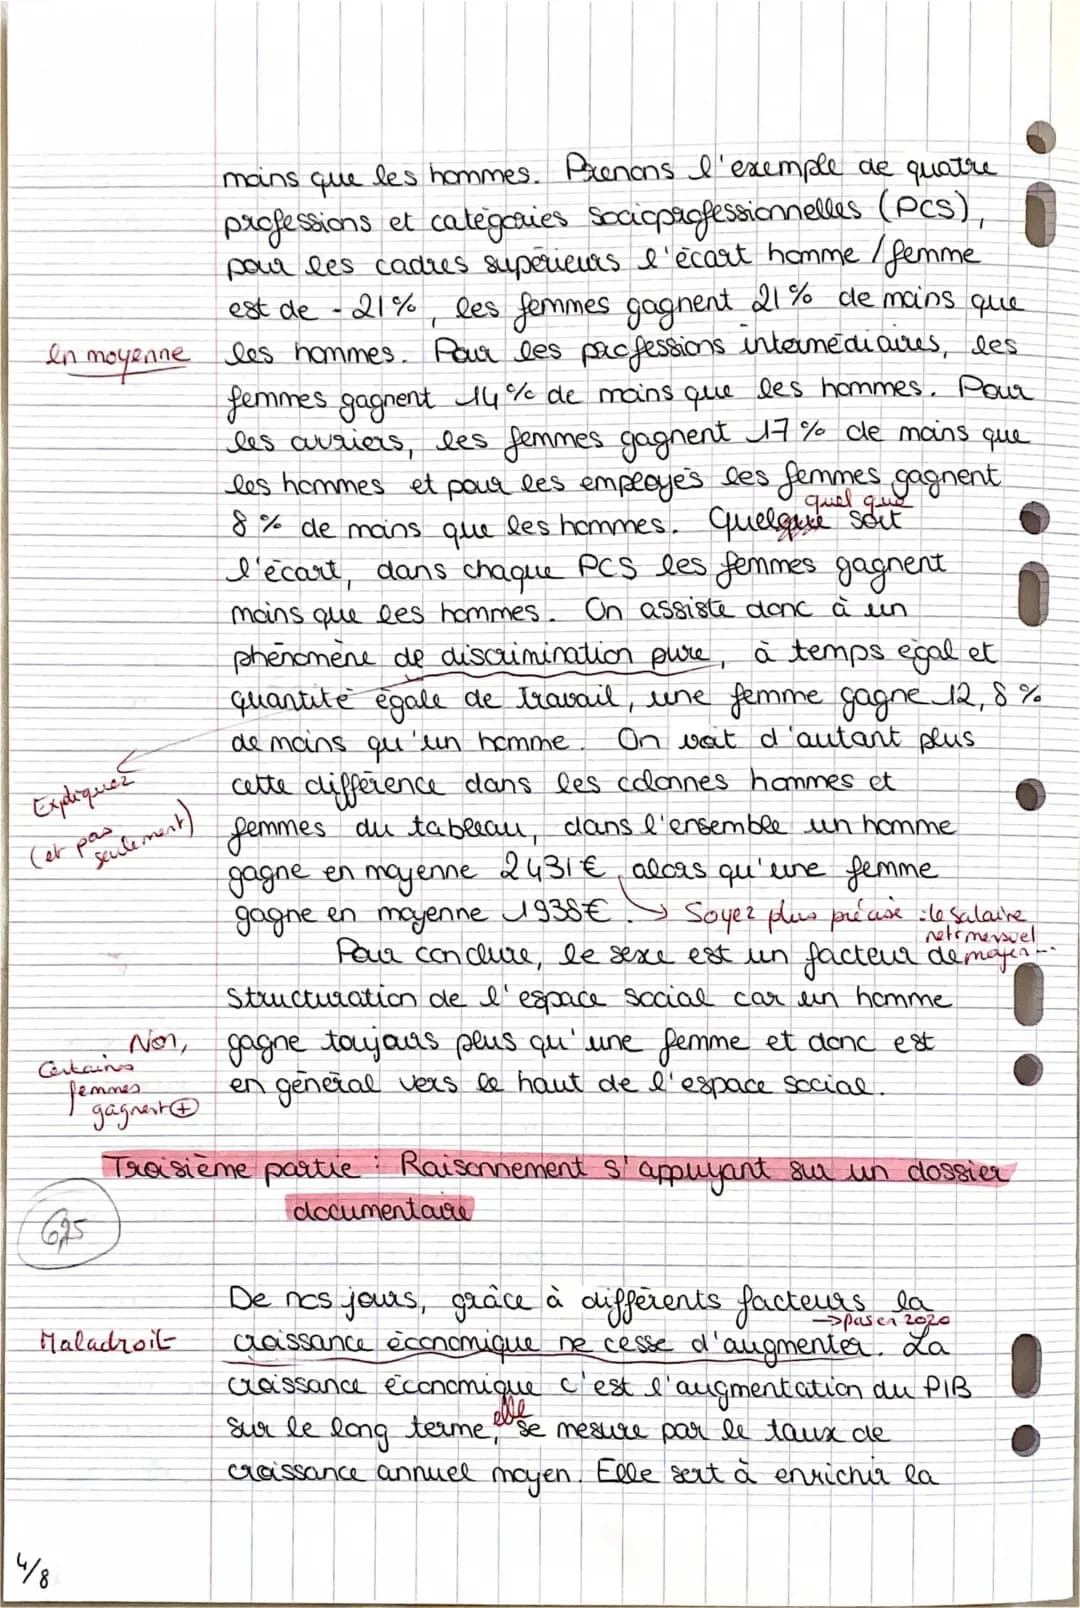 moins que les hommes. Prenons l'exemple de quatre
professions et catégories socioprofessionnelles (PCS),
pour les cadres supérieurs l'écart homme / femme
est de -21%, les femmes gagnent 21% de moins que
en moyenne
les hommes. Pour les professions intermédiaires, les
femmes gagnent 14% de moins que les hommes. Pour
les ouvriers, les femmes gagnent 17% de moins que
les hommes et pour les employés les femmes gagnent
quel que
8% de moins que les hommes. Quelque soit
l'écart, dans chaque PCS les femmes gagnent
moins que les hommes. On assiste donc à un
phénomène de discrimination pure, à temps égal et
quantité égale de travail, une femme gagne 12,8%
de moins qu'un homme. On voit d'autant plus
Expliquez
(et pas
seulement)
cette différence dans les colonnes hommes et
femmes du tableau, dans l'ensemble un homme
gagne en moyenne 2431€, alors qu'une femme
gagne en moyenne 1938€. → Soyez plus précise : le salaire
net mensuel
moyen...
Pour conclure, le sexe est un facteur de
structuration de l'espace social car un homme
Non,
Certaines
femmes
gagnent +
gagne toujours plus qu'une femme et donc est
en général vers le haut de l'espace social.
Troisième partie : Raisonnement s'appuyant sur un dossier
documentaire
6,25
De nos jours, grâce à différents facteurs la
→ pas en 2020
Maladroit
croissance économique ne cesse d'augmenter. La
croissance économique c'est l'augmentation du PIB
elle
sur le long terme, se mesure par le taux de
croissance annuel moyen. Elle sert à enrichir la
4/8